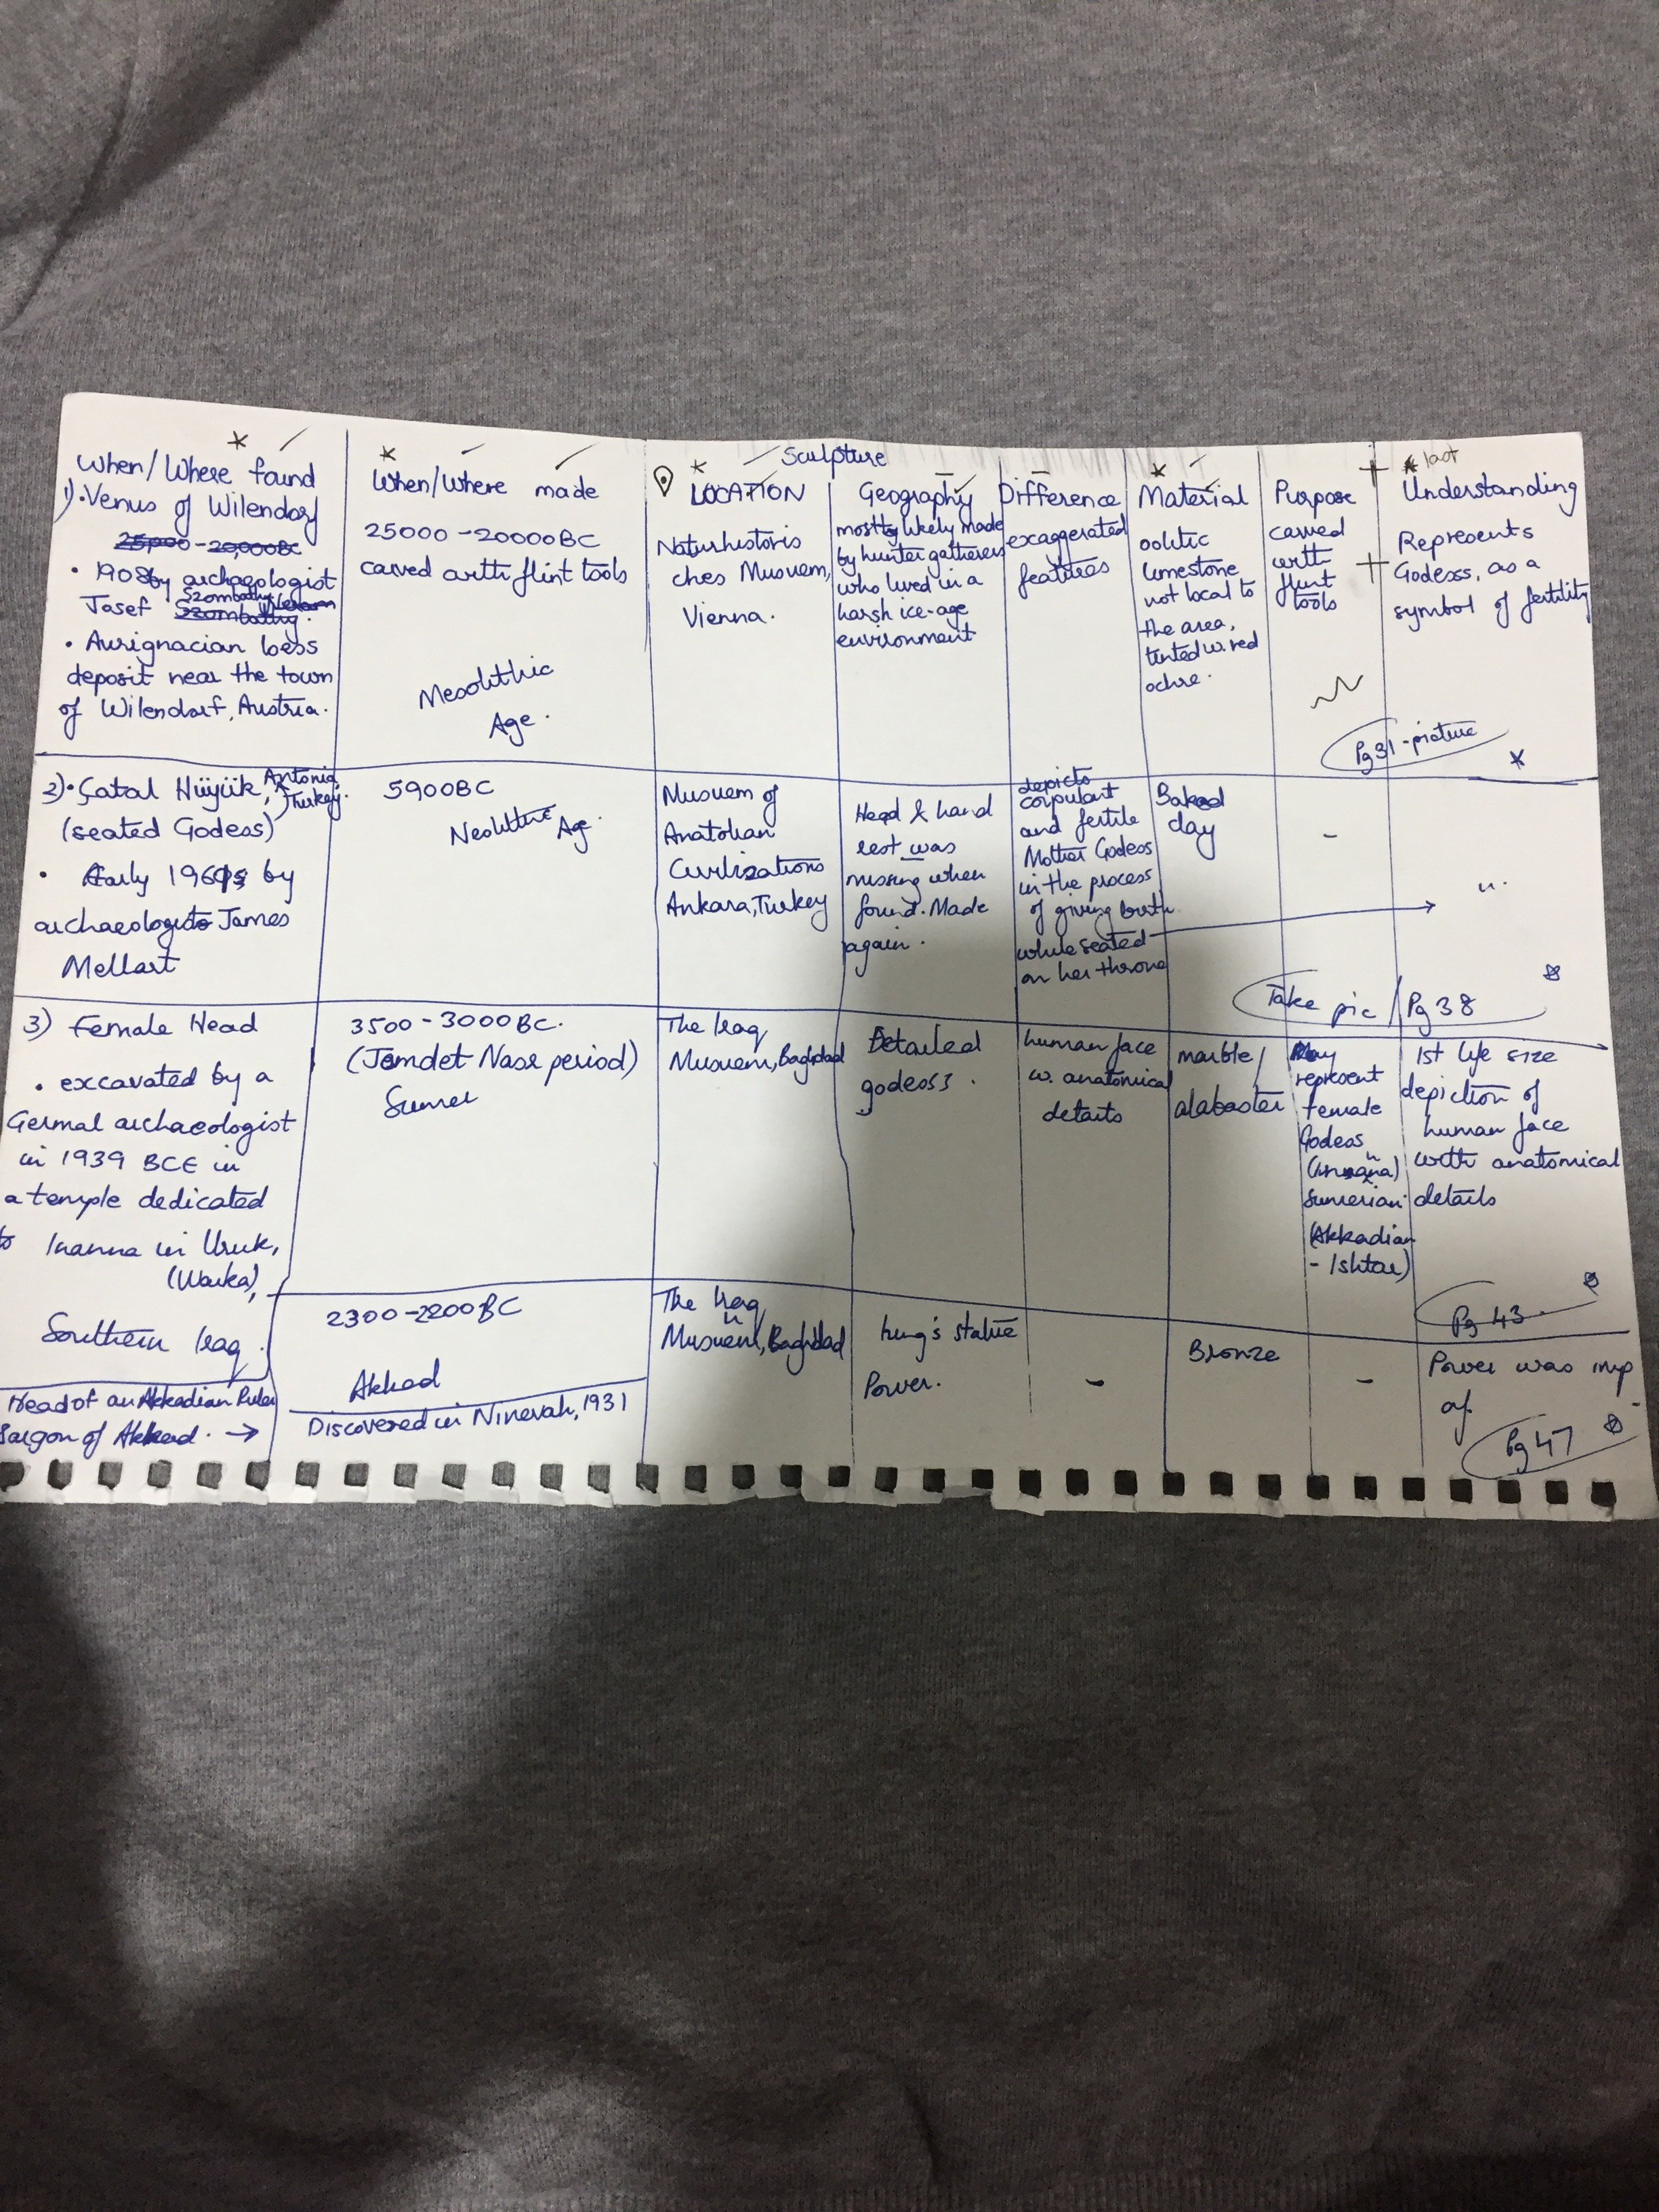 Sculpture
When/Where found
1) · Venus of Wilendorf
25,000 - 20,000BC
· 1908 by archaeologist
Josef Szombathy
Szombathy.
· Aurignacian loess
deposit near the town
of Wilendorf, Austria.
When/Where made
25000 - 20000BC
carved with flint tools
Mesolithic
Age.
LOCATION
Naturhistoris
ches Musuem,
Vienna.
Geography
mostly likely made
by hunter gatherers
who lived in a
harsh ice-age
environment
Difference
exaggerated
features
Material
oolitic
limestone
not local to
the area,
tinted w. red
ochre.
Purpose
carved
with
flint
tools
last
Understanding
Represents
Godess, as a
symbol of fertility
Pg 31 - picture
2) · Çatal Hüyük, Antonia,
Turkey.
(seated Godess)
· Early 1960s by
archaeologist James
Mellart
5900BC
Neolithic Age.
Musuem of
Anatolian
Civilizations
Ankara, Turkey
Head & hand
rest was
missing when
found. Made
again.
depicts
corpulant
and fertile
Mother Godess
in the process
of giving birth
while seated
on her throne
Baked
clay
-
Take pic / Pg 38
3) Female Head
· excavated by a
Germal archaeologist
in 1939 BCE in
a temple dedicated
to Inanna in Uruk,
(Warka),
Southern Iraq.
3500 - 3000 BC.
(Jemdet Nasr period)
Sumer
The Iraq
Musuem, Baghdad
Detailed
godess.
human face
w. anatomical
details
marble/
alabaster
May
represent
female
Godess
(Innana)
Sumerian
(Akkadian
- Ishtar)
1st life size
depiction of
human face
with anatomical
details
Pg 43
Head of an Akkadian Ruler
Sargon of Akkad. →
2300-2200 BC
Akkad
Discovered in Ninevah, 1931
The Iraq
Musuem, Baghdad
king's statue
Power.
-
Bronze
-
Power was imp
of.
Pg 47